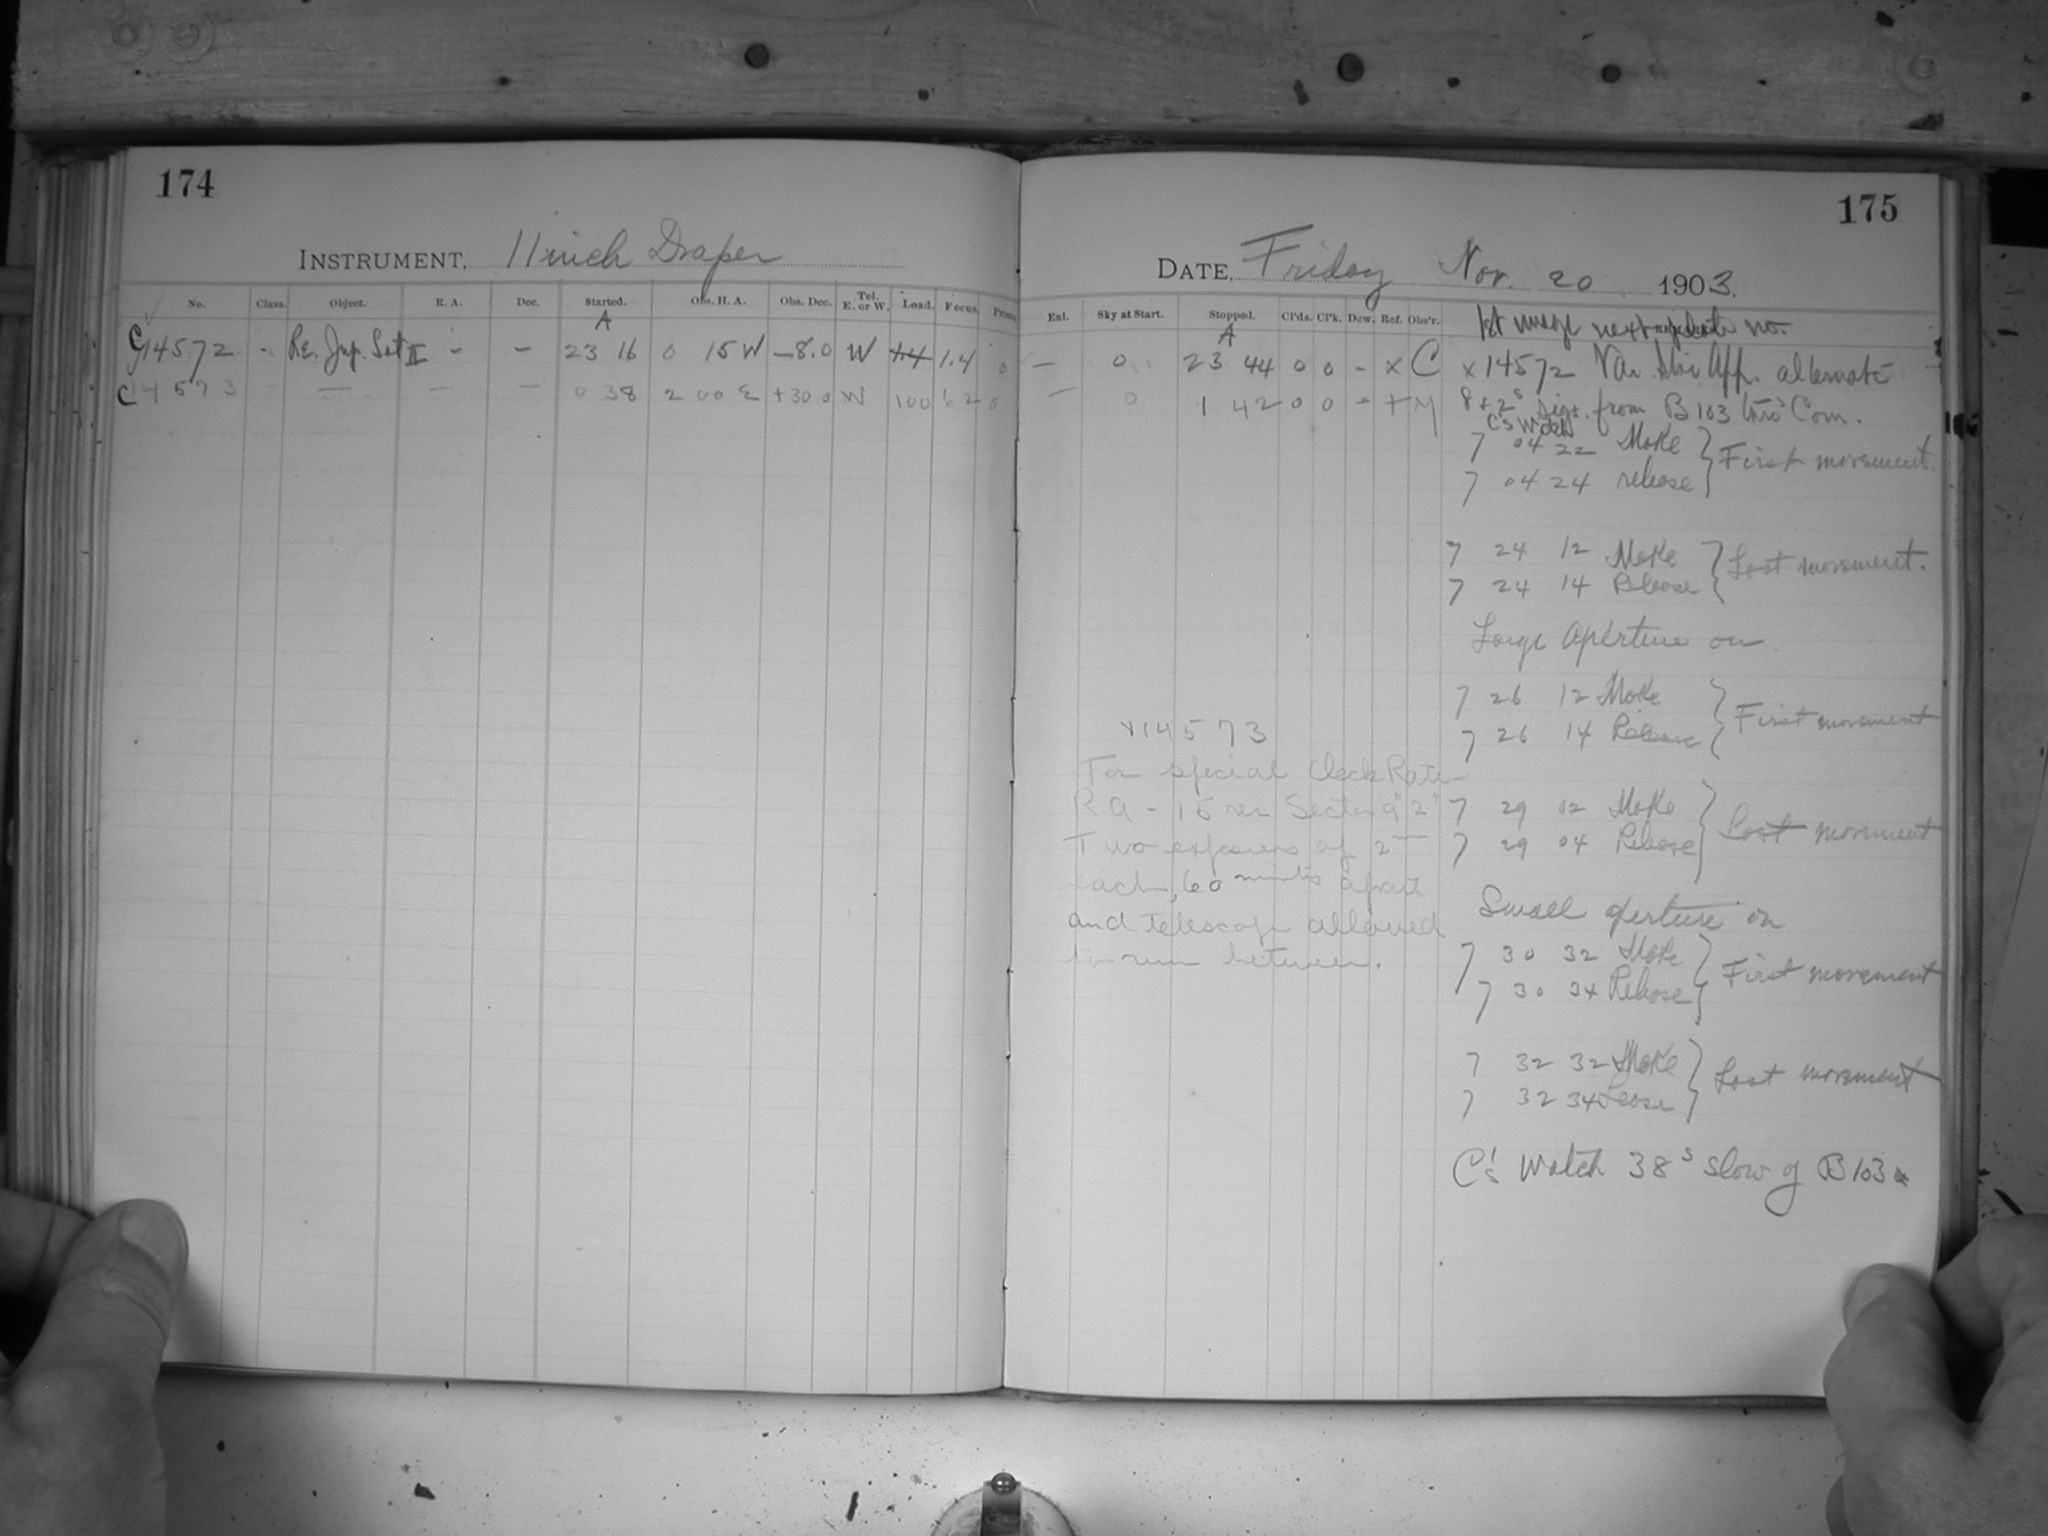 174
INSTRUMENT, 11 inch Draper
No. Class. Object. R. A. Dec. Started. Obs. H. A. Obs. Dec. Tel. E. or W. Load. Focus. Prism.
A
C 14572 - Re. Jup. Sat II - - 23 16 0 15 W -8.0 W 1.4 0
C 14573 - — - — 0 38 2 00 E +30 0 W 100 62 0
175
DATE, Friday Nov. 20 1903.
Enl. Sky at Start. Stopped. Cl'ds. Cl'k. Dew. Ref. Obs'r.
1st image next plate no.
A
— 0 23 44 0 0 - x C
— 0 1 42 0 0 - + M
x 14572 Var. App. alternate
8 + 2s from B 103 Com.
C's Watch
7 04 22 Make } First movement.
7 04 24 release
7 24 12 Make } Last movement.
7 24 14 Release
Large aperture on
7 26 12 Make } First movement
7 26 14 Release
7 29 02 Make } Last movement
7 29 04 Release
Small aperture on
7 30 32 Make } First movement
7 30 34 Release
7 32 32 Make } Last movement
7 32 34 Lease
C's Watch 38s slow of B 103
x14573
For special Clock Rate
RA - 15 rev Sector 9" 2"
Two exposures of 2m
each, 60 minutes apart
and telescope allowed
to run between.